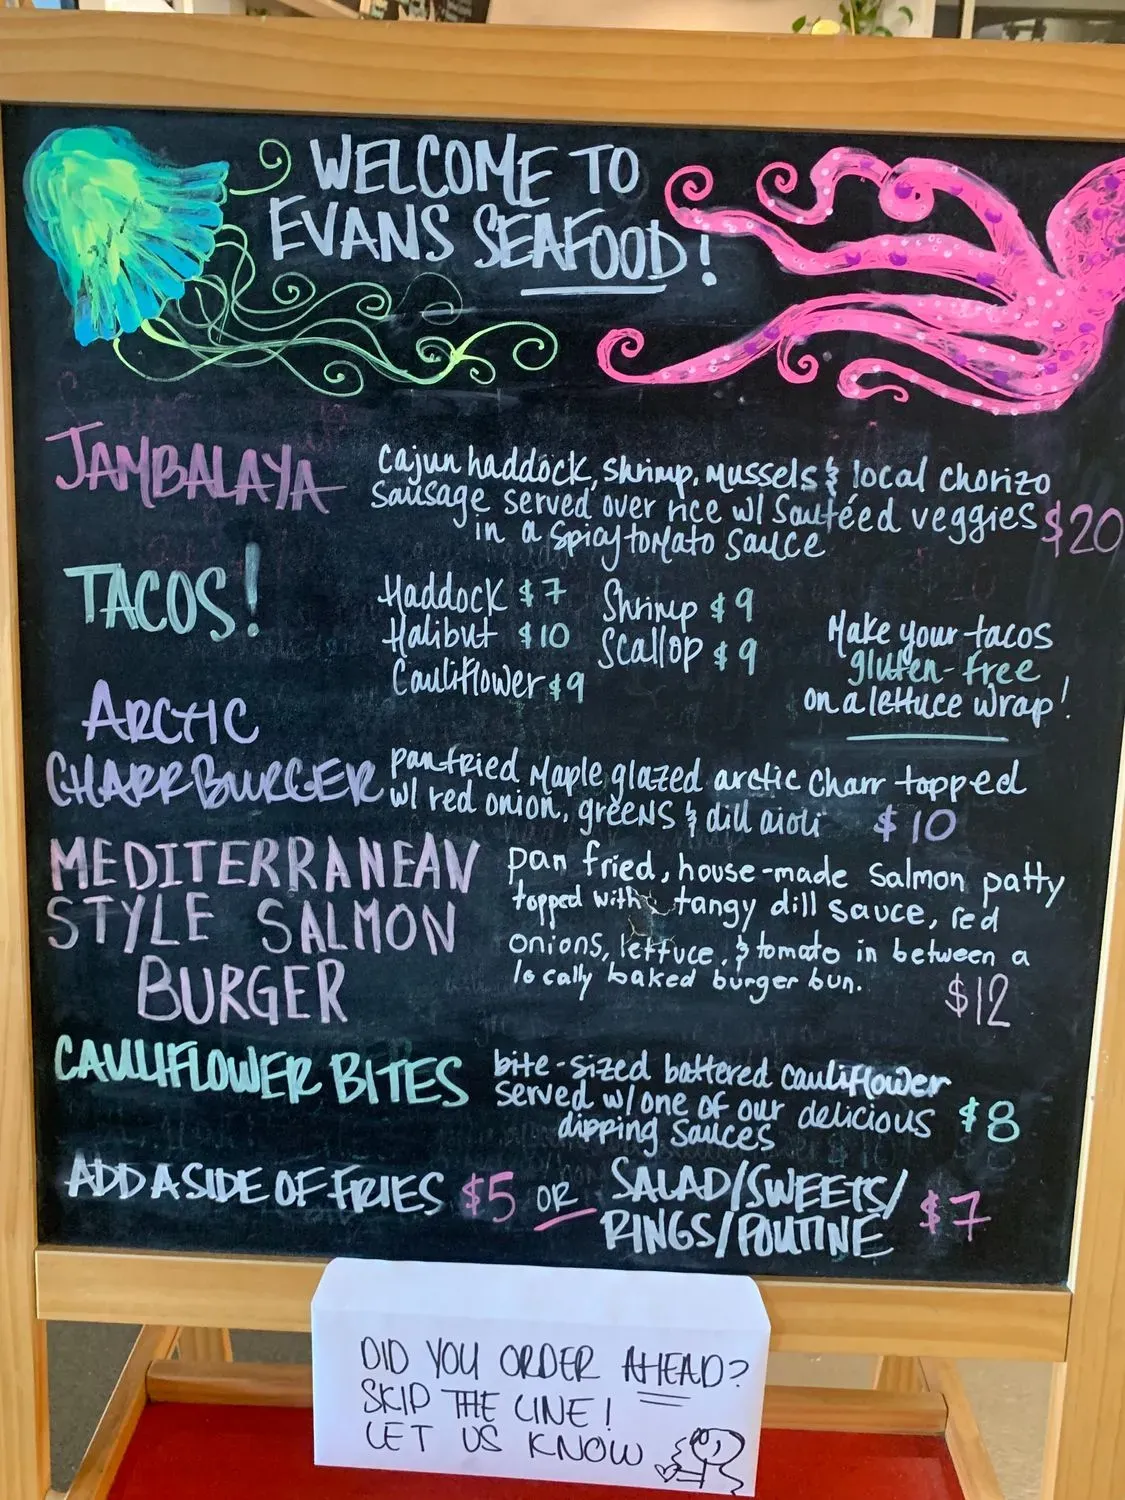 WELCOME TO
EVANS SEAFOOD!
JAMBALAYA
Cajun haddock, shrimp, mussels & local chorizo
sausage served over rice w/ sautéed veggies $20
in a spicy tomato sauce
TACOS!
Haddock $7 Shrimp $9
Halibut $10 Scallop $9
Cauliflower $9
Make your tacos
gluten-free
on a lettuce wrap!
ARCTIC
CHARR BURGER
pan fried maple glazed arctic charr topped
w/ red onion, greens & dill aioli $10
MEDITERRANEAN
STYLE SALMON
BURGER
pan fried, house-made salmon patty
topped with tangy dill sauce, red
onions, lettuce, & tomato in between a
locally baked burger bun.
$12
CAULIFLOWER BITES
bite-sized battered cauliflower
served w/ one of our delicious $8
dipping sauces
ADD A SIDE OF FRIES $5 OR SALAD/SWEETS/
RINGS/POUTINE $7
DID YOU ORDER AHEAD?
SKIP THE LINE!
LET US KNOW